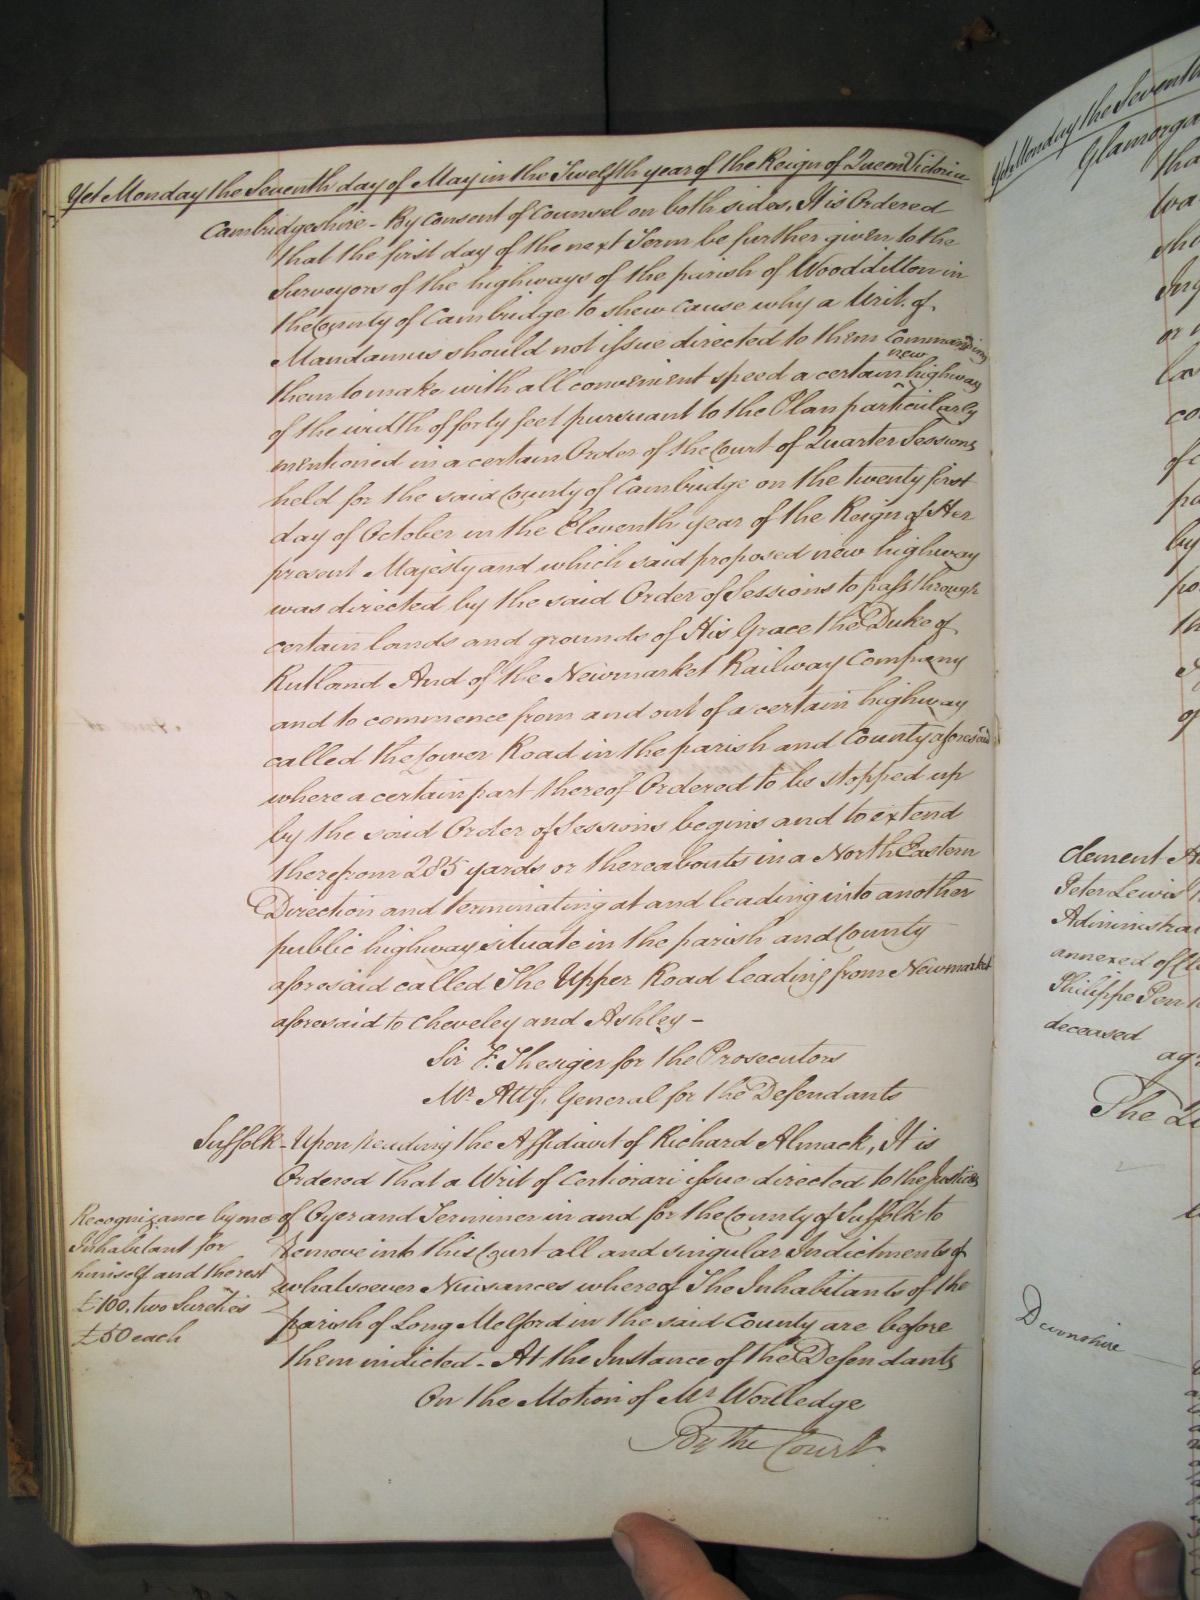 Yet Monday the Seventh day of May in the Twelfth year of the Reign of Queen Victoria
Cambridgeshire - By Consent of Counsel on both sides, It is Ordered
that the first day of the next Term be further given to the
Surveyors of the highways of the parish of Woodditton in
the County of Cambridge to shew cause why a Writ of
Mandamus should not issue directed to them commanding
them to make with all convenient speed a certain new highway
of the width of forty feet pursuant to the Plan particularly
mentioned in a certain Order of the Court of Quarter Sessions
held for the said County of Cambridge on the twenty first
day of October in the Eleventh year of the Reign of Her
present Majesty and which said proposed new highway
was directed by the said Order of Sessions to pass through
certain lands and grounds of His Grace the Duke of
Rutland And of the Newmarket Railway Company
and to commence from and out of a certain highway
called the Lower Road in the parish and County aforesaid
where a certain part thereof Ordered to be stopped up
by the said Order of Sessions begins and to extend
therefrom 285 yards or thereabouts in a North Eastern
Direction and terminating at and leading into another
public highway situate in the parish and County
aforesaid called The Upper Road leading from Newmarket
aforesaid to Cheveley and Ashley -
Sir F. Thesiger for the Prosecutors
Mr. Atty. General for the Defendants
Suffolk - Upon reading the Affidavit of Richard Almack, It is
Ordered that a Writ of Certiorari issue directed to the Justices
of Oyer and Terminer in and for the County of Suffolk to
remove into this Court all and singular Indictments of
whatsoever Nuisances whereof The Inhabitants of the
parish of Long Melford in the said County are before
them indicted - At the Instance of the Defendants
Recognizance by one
Inhabitant for
himself and the rest
£100, two Sureties
£50 each
On the Motion of Mr. Worlledge
By the Court
Yet Monday the Seventh
Glamorga
tha
wa
or
co
by
Clement
Peter Lewis
Administra
annexed of
Philippe Pen
deceased
The
Devonshire